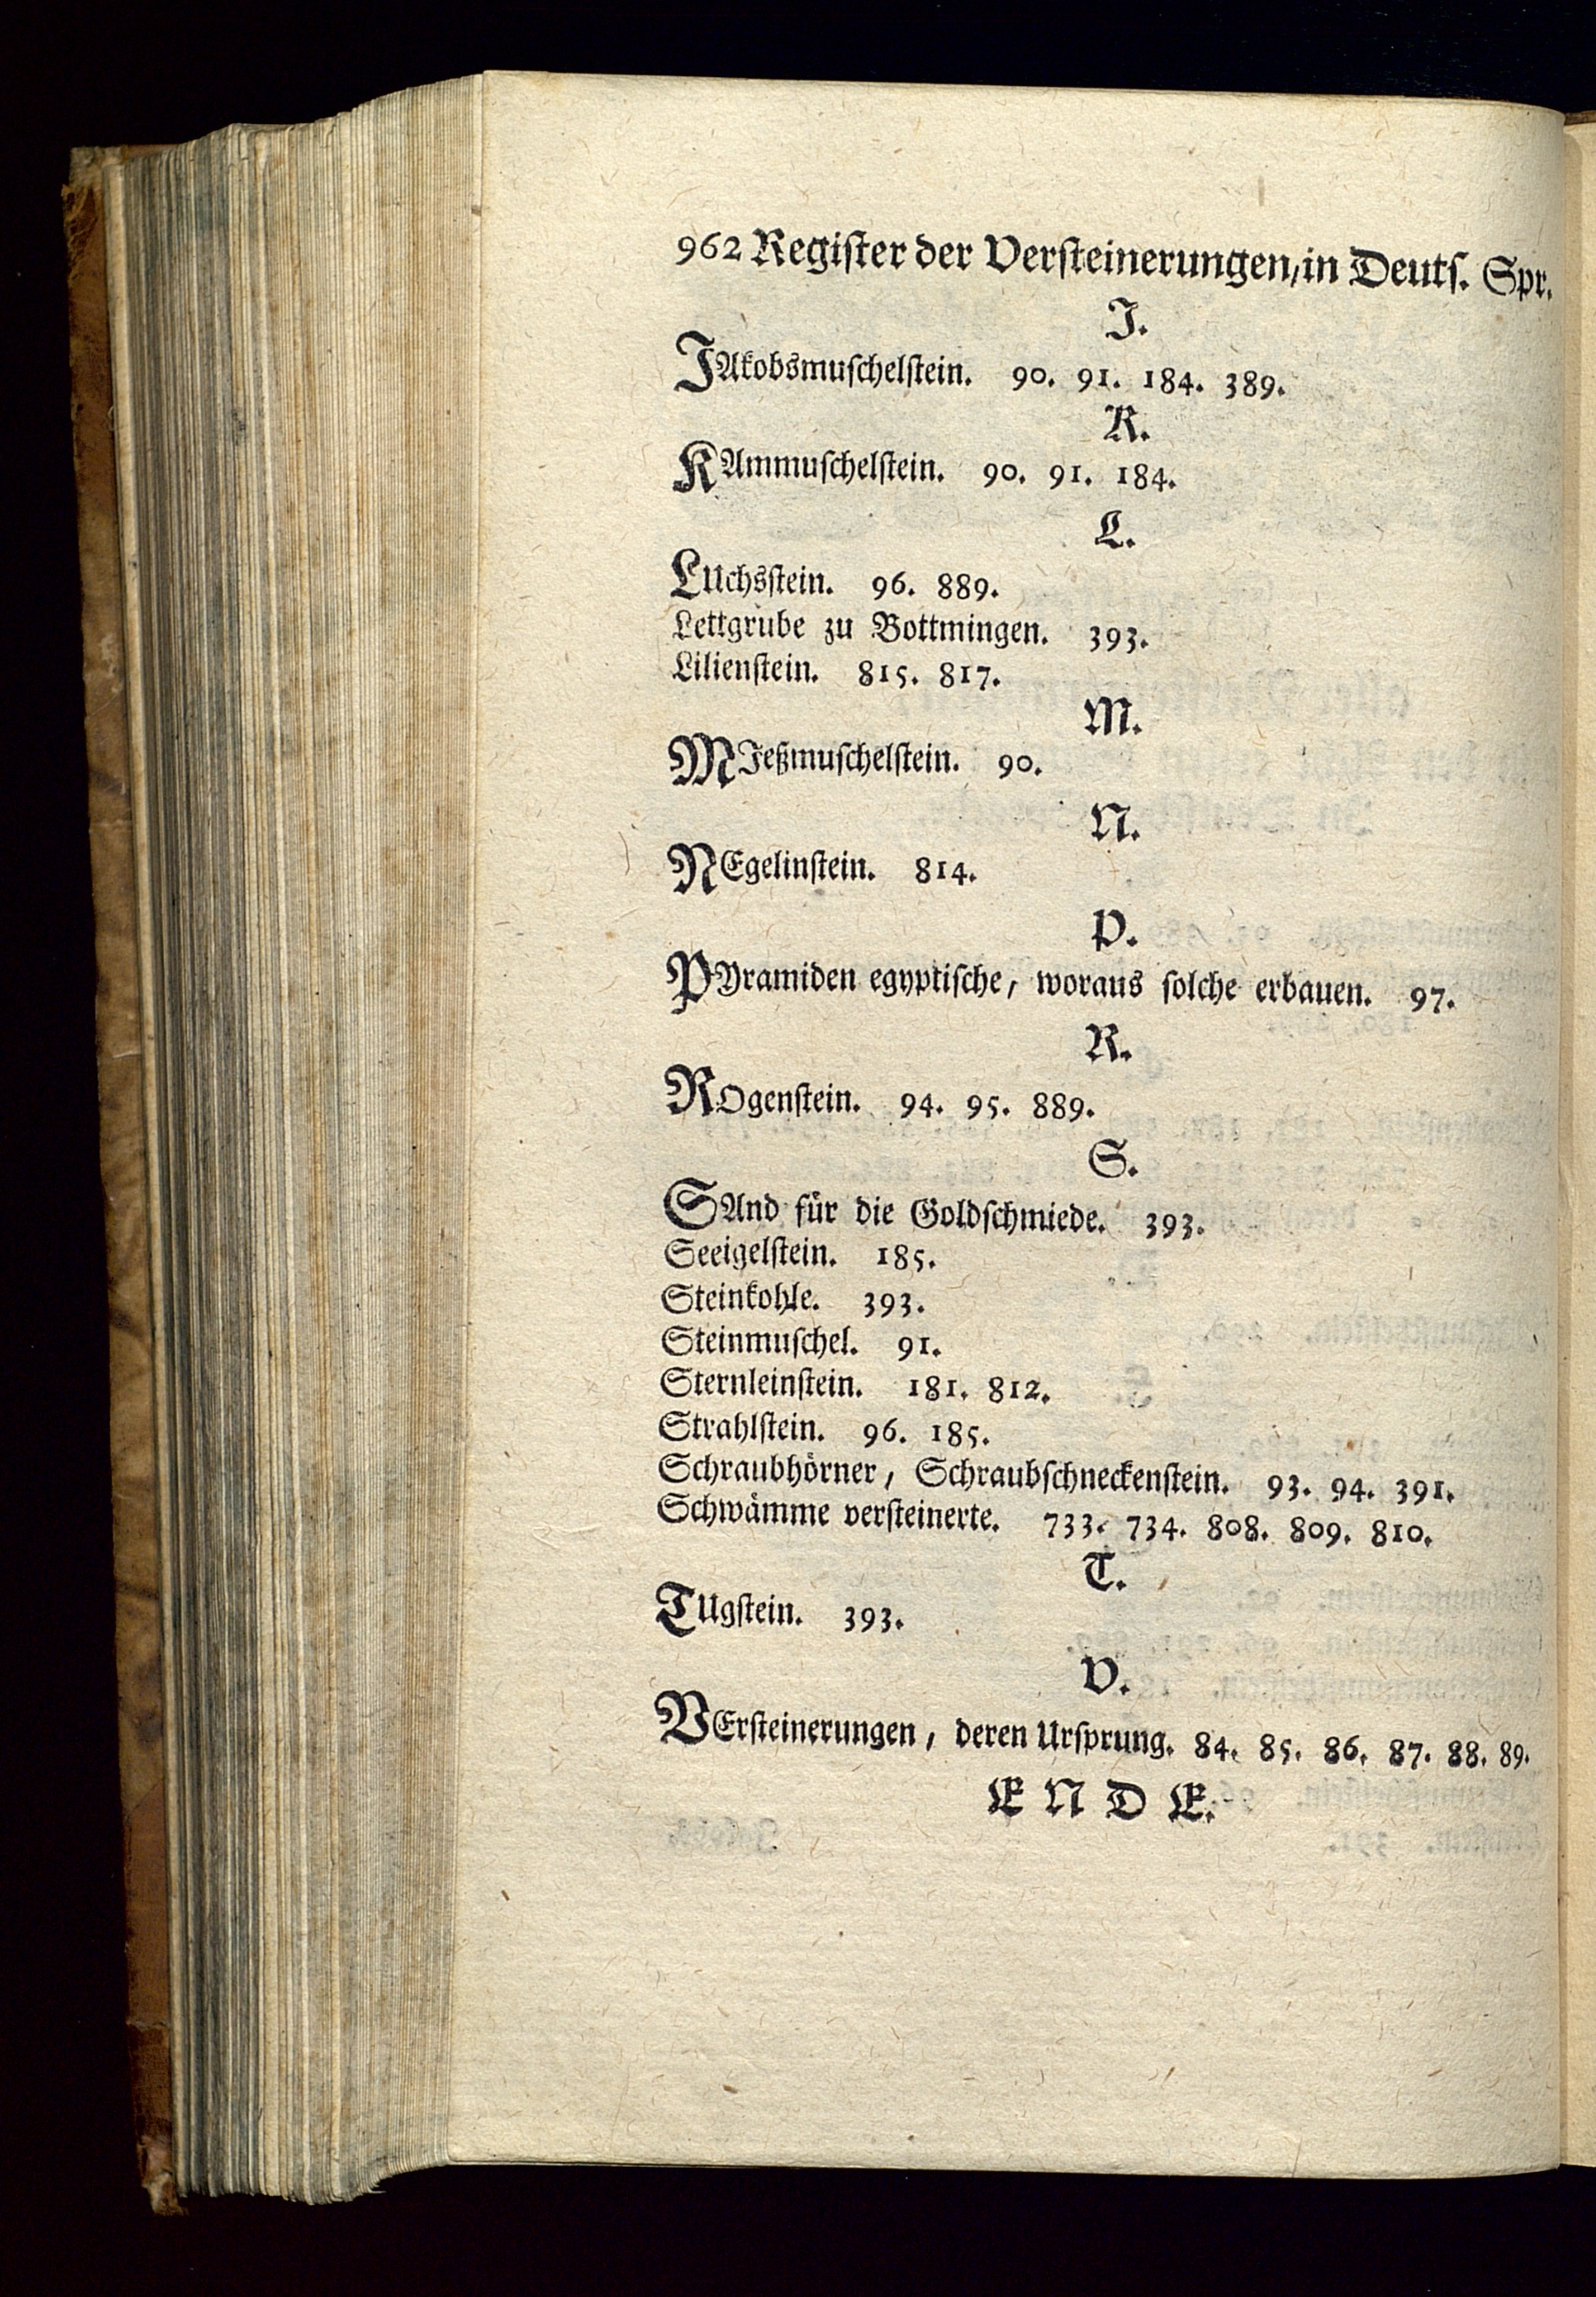 962 Regiſter der Verſteinerungen, in Deutſ. Spr.
J.
JAkobsmuſchelſtein. 90. 91. 184. 389.
K.
KAmmuſchelſtein. 90. 91. 184.
L.
LUchsſtein. 96. 889.
Lettgrube zu Bottmingen. 393.
Lilienſtein. 815. 817.
M.
MJeßmuſchelſtein. 90.
N.
NEgelinſtein. 814.
P.
PYramiden egyptiſche, woraus ſolche erbauen. 97.
R.
ROgenſtein. 94. 95. 889.
S.
SAnd für die Goldſchmiede. 393.
Seeigelſtein. 185.
Steinkohle. 393.
Steinmuſchel. 91.
Sternleinſtein. 181. 812.
Strahlſtein. 96. 185.
Schraubhörner, Schraubſchneckenſtein. 93. 94. 391.
Schwämme verſteinerte. 733. 734. 808. 809. 810.
T.
TUgſtein. 393.
V.
VErſteinerungen, deren Urſprung. 84. 85. 86. 87. 88. 89.
E N D E.